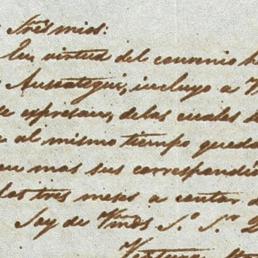 Sres mios:
En virtud del convenio h
Aurrategui, incluyo a V
e expresan, de las cuales d
al mismo tiempo queda
mas sus correspondi
los tres meses a contar d
Soy de Vmds S.º S.ʳ
Ventura